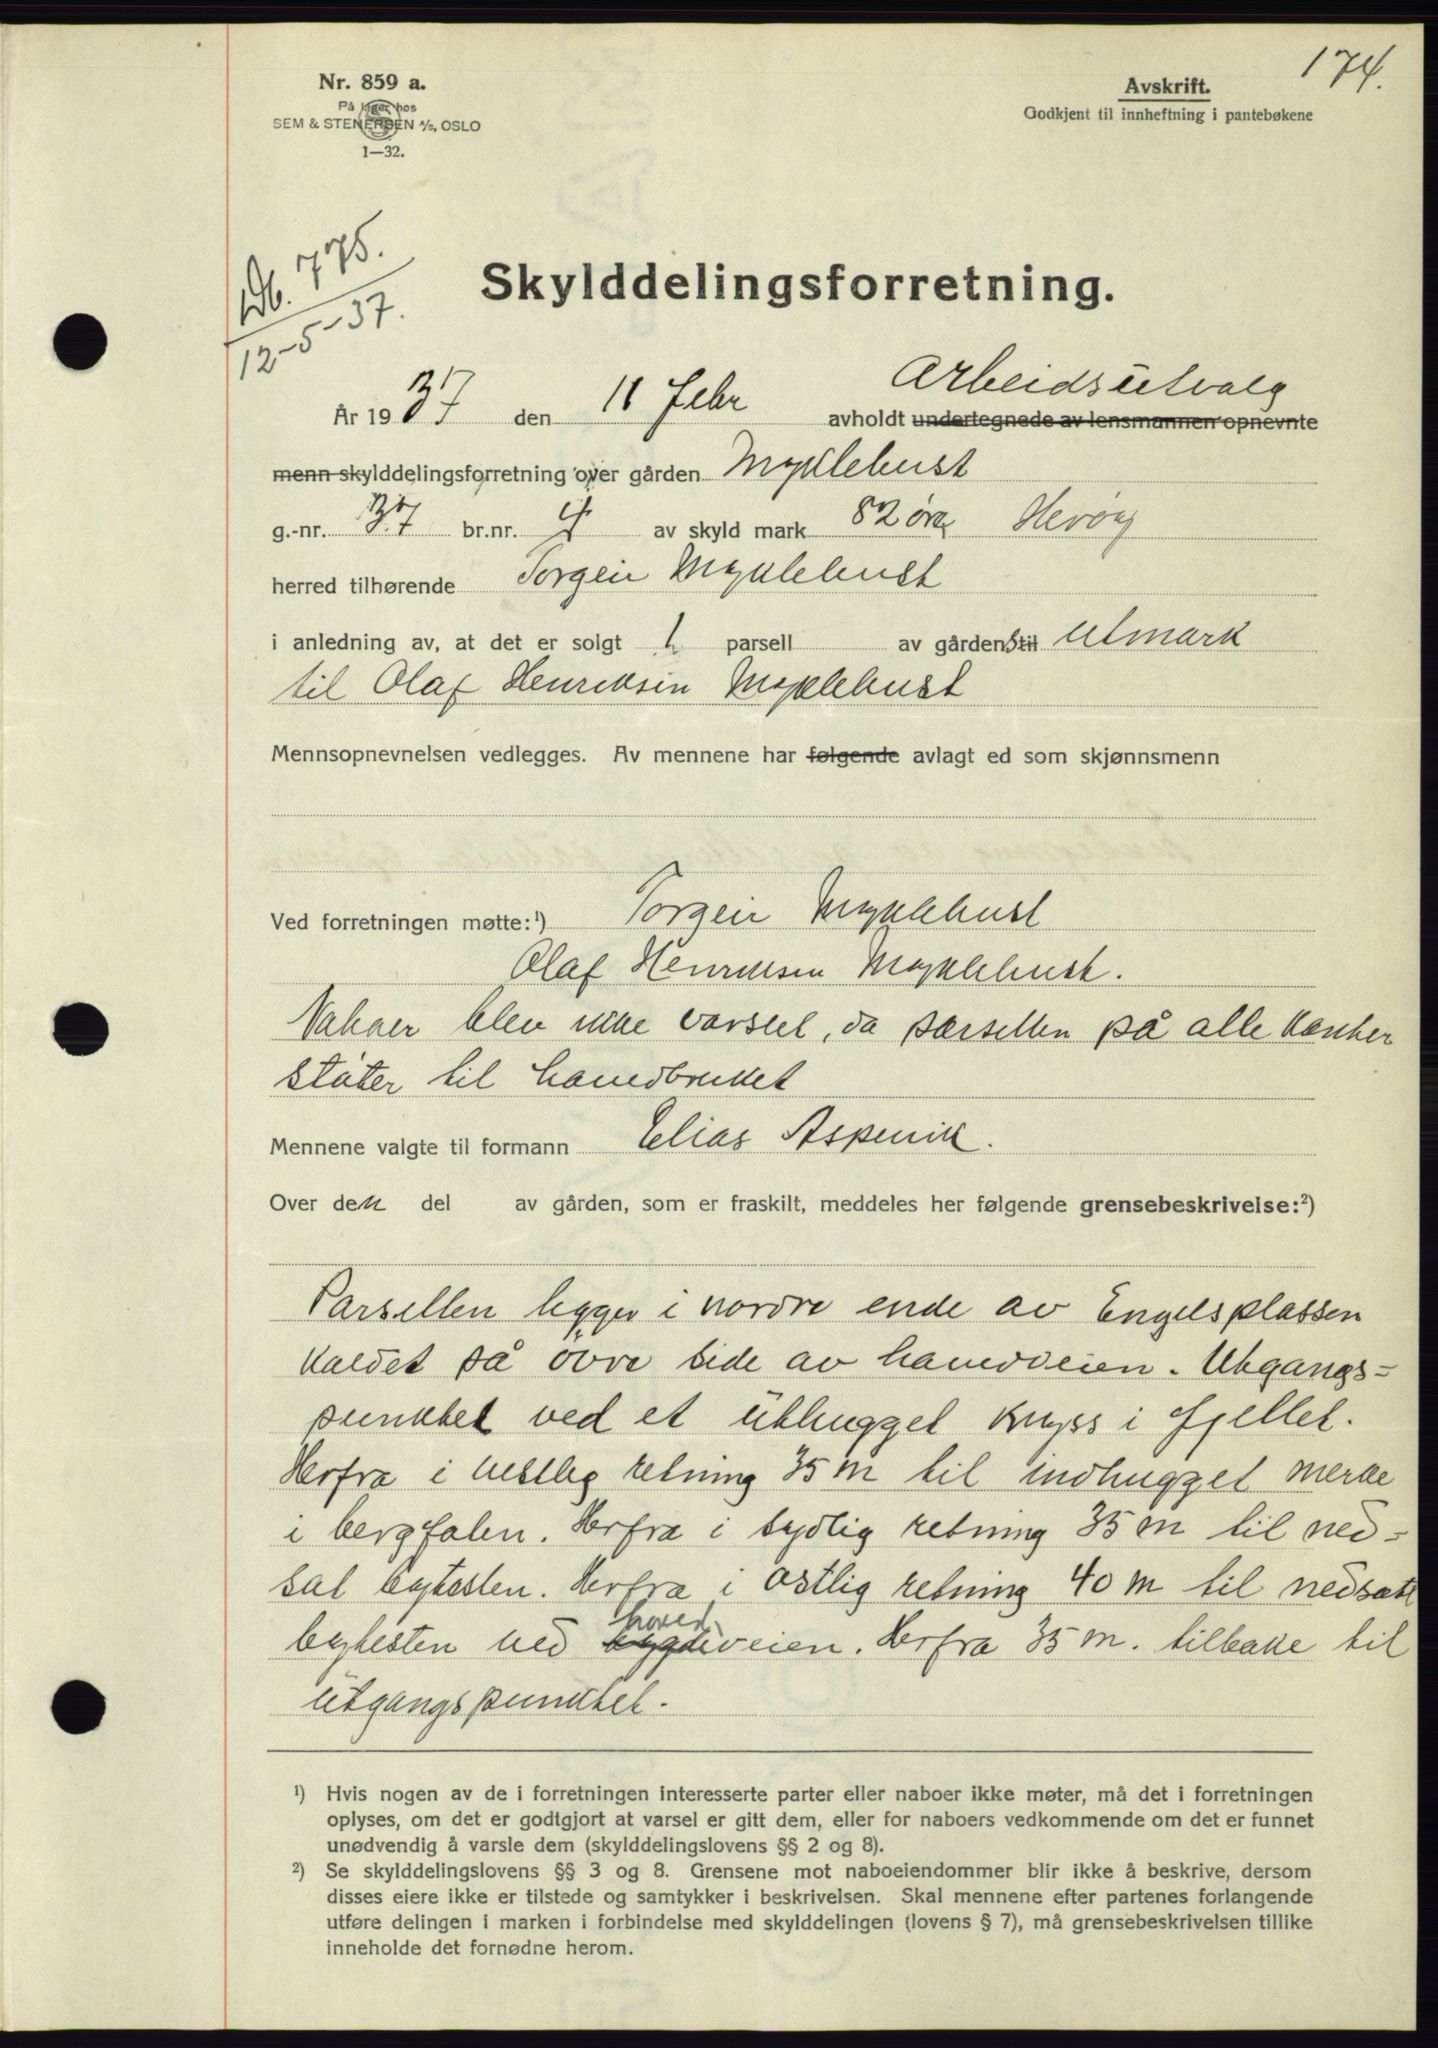 174.
Nr. 859 a.
På lager hos
SEM & STENERSEN A/S, OSLO
1—32.
Avskrift.
Godkjent til innheftning i pantebøkene
Db. 775.
12-5-37.
Skylddelingsforretning.
Arbeidsutvalg
År 1937 den 11 Febr avholdt undertegnede av lensmannen opnevnte
menn skylddelingsforretning over gården Myklebust
g.-nr. 37 br.nr. 4 av skyld mark 82 øre Herøy
herred tilhørende Torgeir Myklebust
i anledning av, at det er solgt 1 parsell av gårdens til utmark
til Olaf Henriksen Myklebust
Mennsopnevnelsen vedlegges. Av mennene har følgende avlagt ed som skjønnsmenn
Ved forretningen møtte:¹) Torgeir Myklebust
Olaf Henriksen Myklebust.
Naboer blev ikke varslet, da parsellen på alle kanter
støter til hovedbruket
Mennene valgte til formann Elias Aspevik.
Over den del av gården, som er fraskilt, meddeles her følgende grensebeskrivelse:²)
Parsellen ligger i nordre ende av Engelsplassen
kaldet på øvre side av hovedveien. Utgangs-
punktet ved et uthugget kryss i fjellet.
Herfra i vestlig retning 35 m til indhugget merke
i bergfalen. Herfra i sydlig retning 35 m til ned-
sat bytesten. Herfra i østlig retning 40 m til nedsatt
hoved
bytesten ved bygdeveien. Herfra 35 m. tilbake til
utgangspunktet.
¹) Hvis nogen av de i forretningen interesserte parter eller naboer ikke møter, må det i forretningen
oplyses, om det er godtgjort at varsel er gitt dem, eller for naboers vedkommende om det er funnet
unødvendig å varsle dem (skylddelingslovens §§ 2 og 8).
²) Se skylddelingslovens §§ 3 og 8. Grensene mot naboeiendommer blir ikke å beskrive, dersom
disses eiere ikke er tilstede og samtykker i beskrivelsen. Skal mennene efter partenes forlangende
utføre delingen i marken i forbindelse med skylddelingen (lovens § 7), må grensebeskrivelsen tillike
inneholde det fornødne herom.